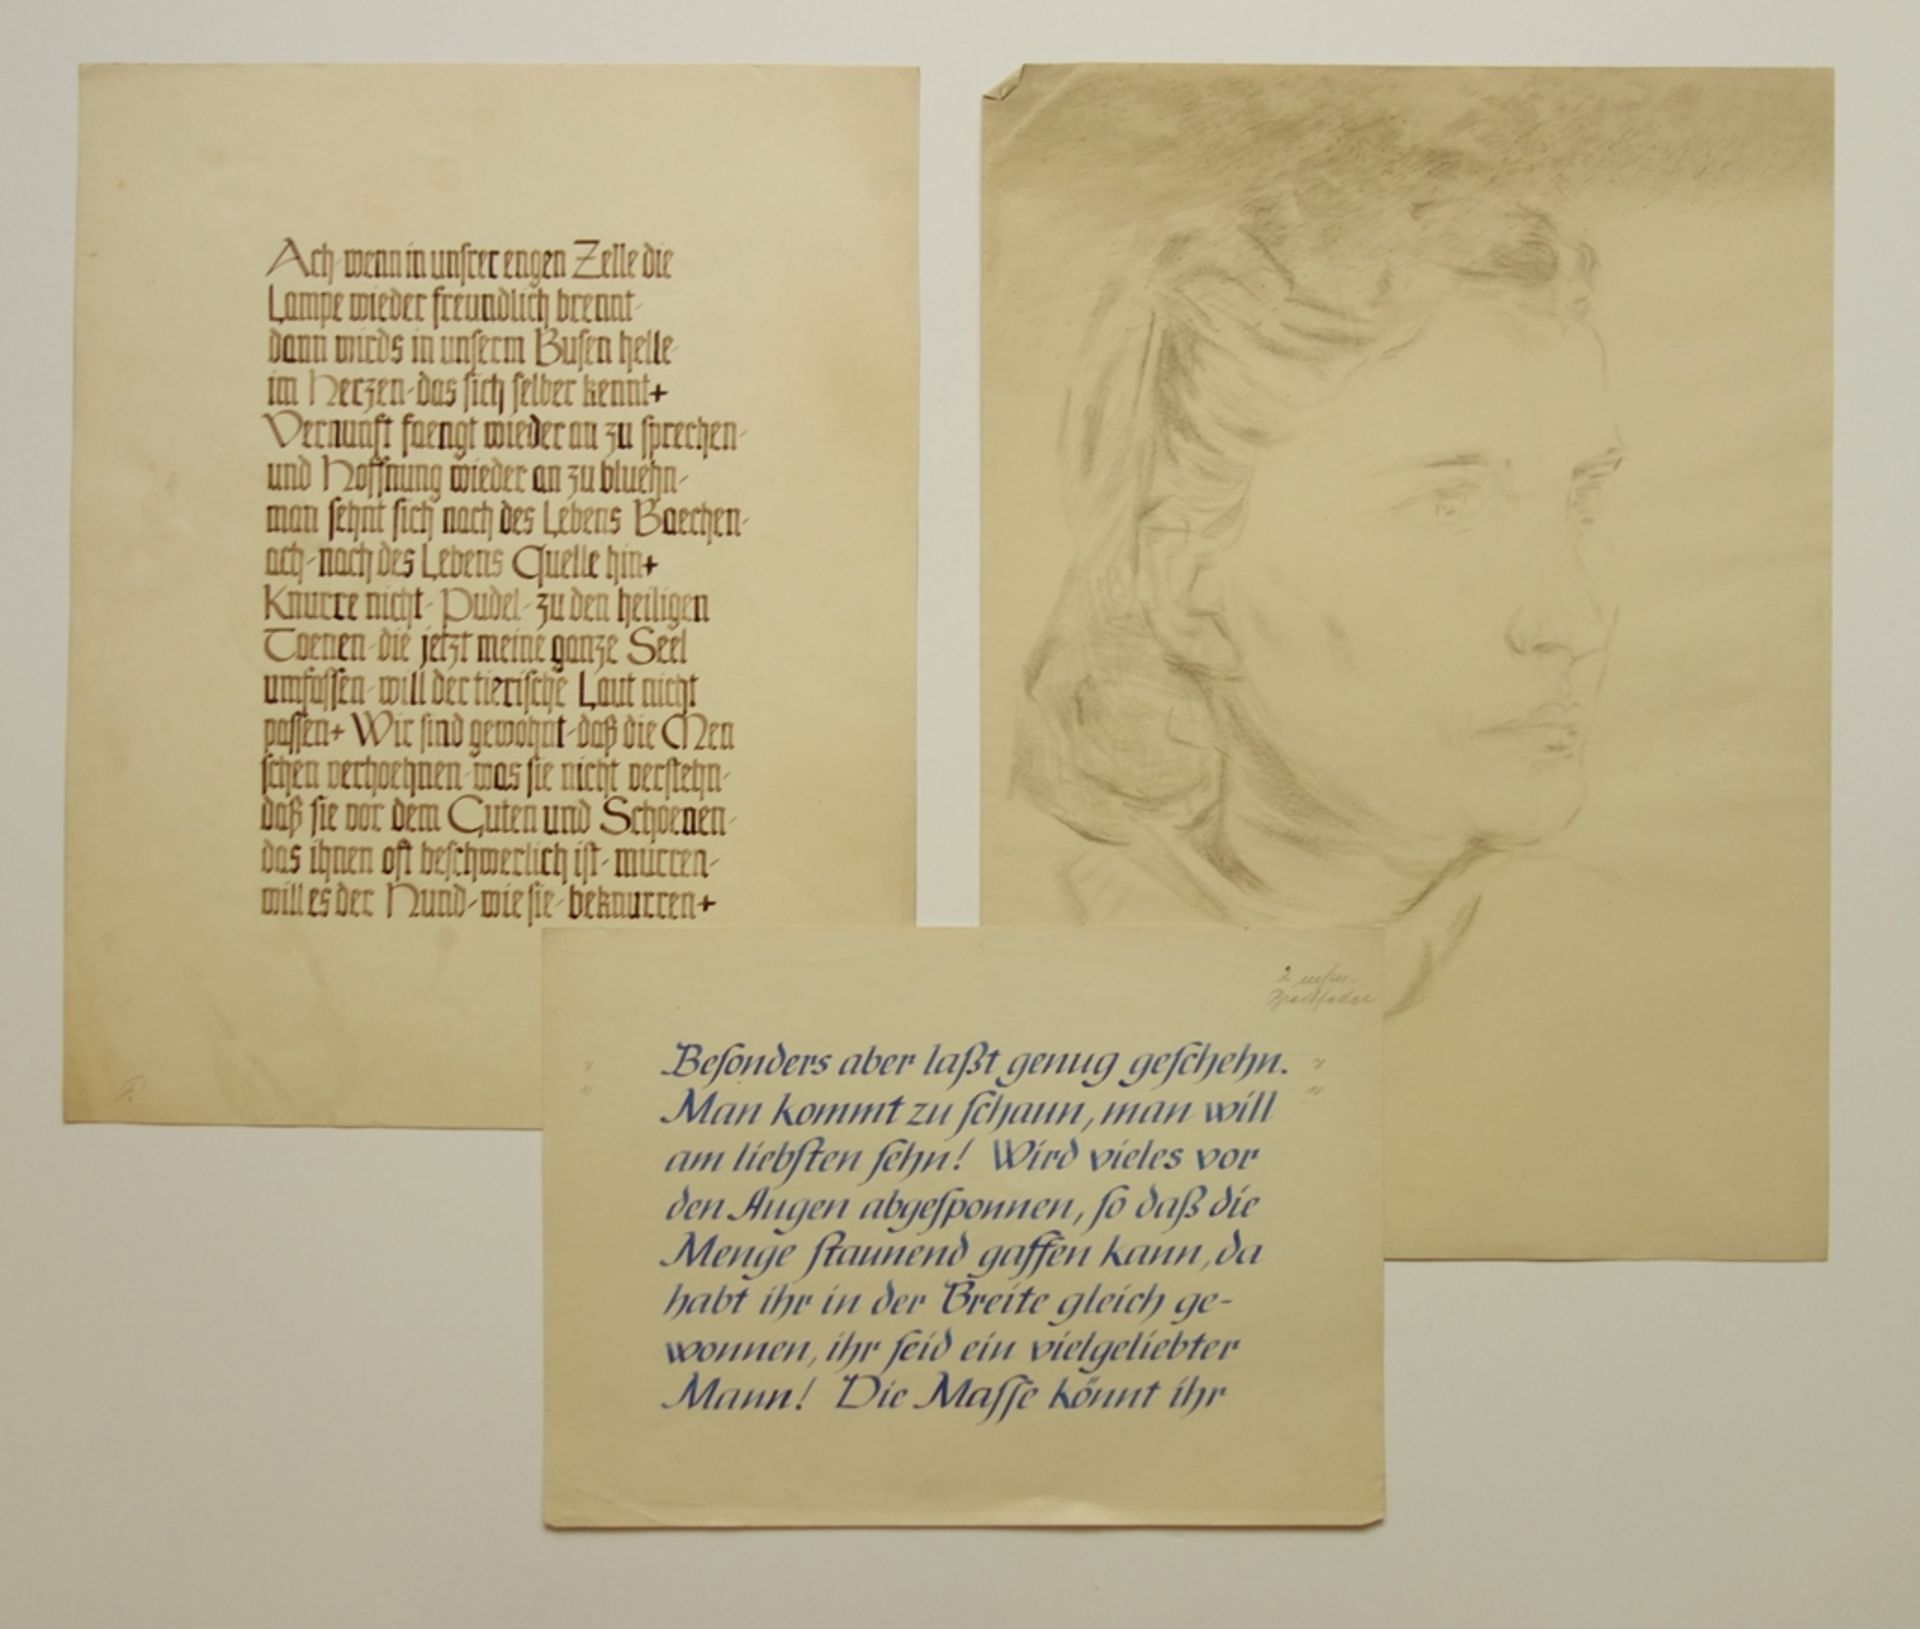 Ach-wenn in unsrer engen Zelle die
Lampe wieder freundlich brennt-
dann wirds in unserm Busen helle-
im Herzen-das sich selber kennt+
Vernunft faengt wieder an zu sprechen-
und Hoffnung wieder an zu bluehn-
man sehnt sich nach des Lebens Baechen-
ach-nach des Lebens Quelle hin+
Knurre nicht-Pudel-zu den heiligen
Toenen-die jetzt meine ganze Seel
umfassen-will der tierische Laut nicht
passen+ Wir sind gewohnt-daß die Men
schen verhoehnen-was sie nicht verstehn-
daß sie vor dem Guten und Schoenen-
das ihnen oft beschwerlich ist-murren-
will es der Hund-wie sie-beknurren+
Breitfeder
Besonders aber laßt genug geschehn.
Man kommt zu schaun, man will
am liebsten sehn! Wird vieles vor
den Augen abgesponnen, so daß die
Menge staunend gaffen kann, da
habt ihr in der Breite gleich ge-
wonnen, ihr seid ein vielgeliebter
Mann! Die Masse könnt ihr